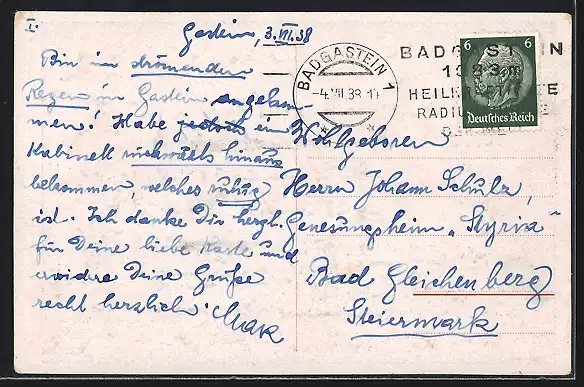 I.
Gastein, 3.VII.38
Bin im strömenden
Regen in Gastein angekom-
men! Habe jedoch ein
Kabinett rückwärts hinaus
bekommen, welches ruhig
ist. Ich danke Dir herzl.
für Deine liebe Karte und
erwidere Deine Grüße
recht herzlich. Max
BADGASTEIN 1
-4.VII.38.
BADGASTEIN
HEIL
RADIU
6 6
Deutsches Reich
Wohlgeboren
Herrn Johann Schulz,
Genesungsheim „Styria"
Bad Gleichenberg
Steiermark